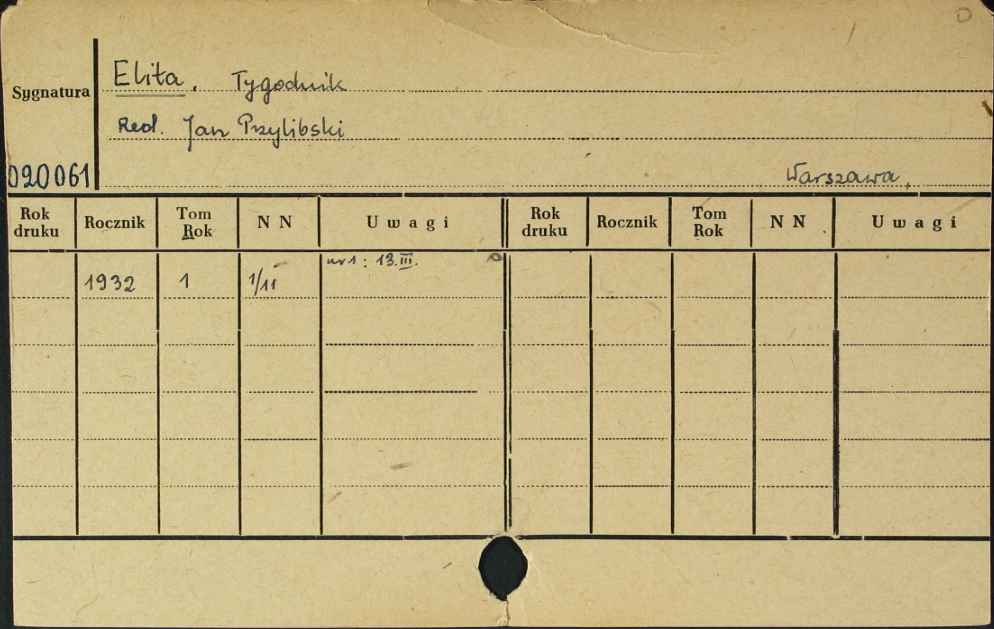 Elita. Tygodnik
Sygnatura
Red. Jan Przylibski
020061
Warszawa,
Rok druku Rocznik Tom Rok N N Uwagi Rok druku Rocznik Tom Rok N N Uwagi
nr 1: 13.III.
1932 1 1/11